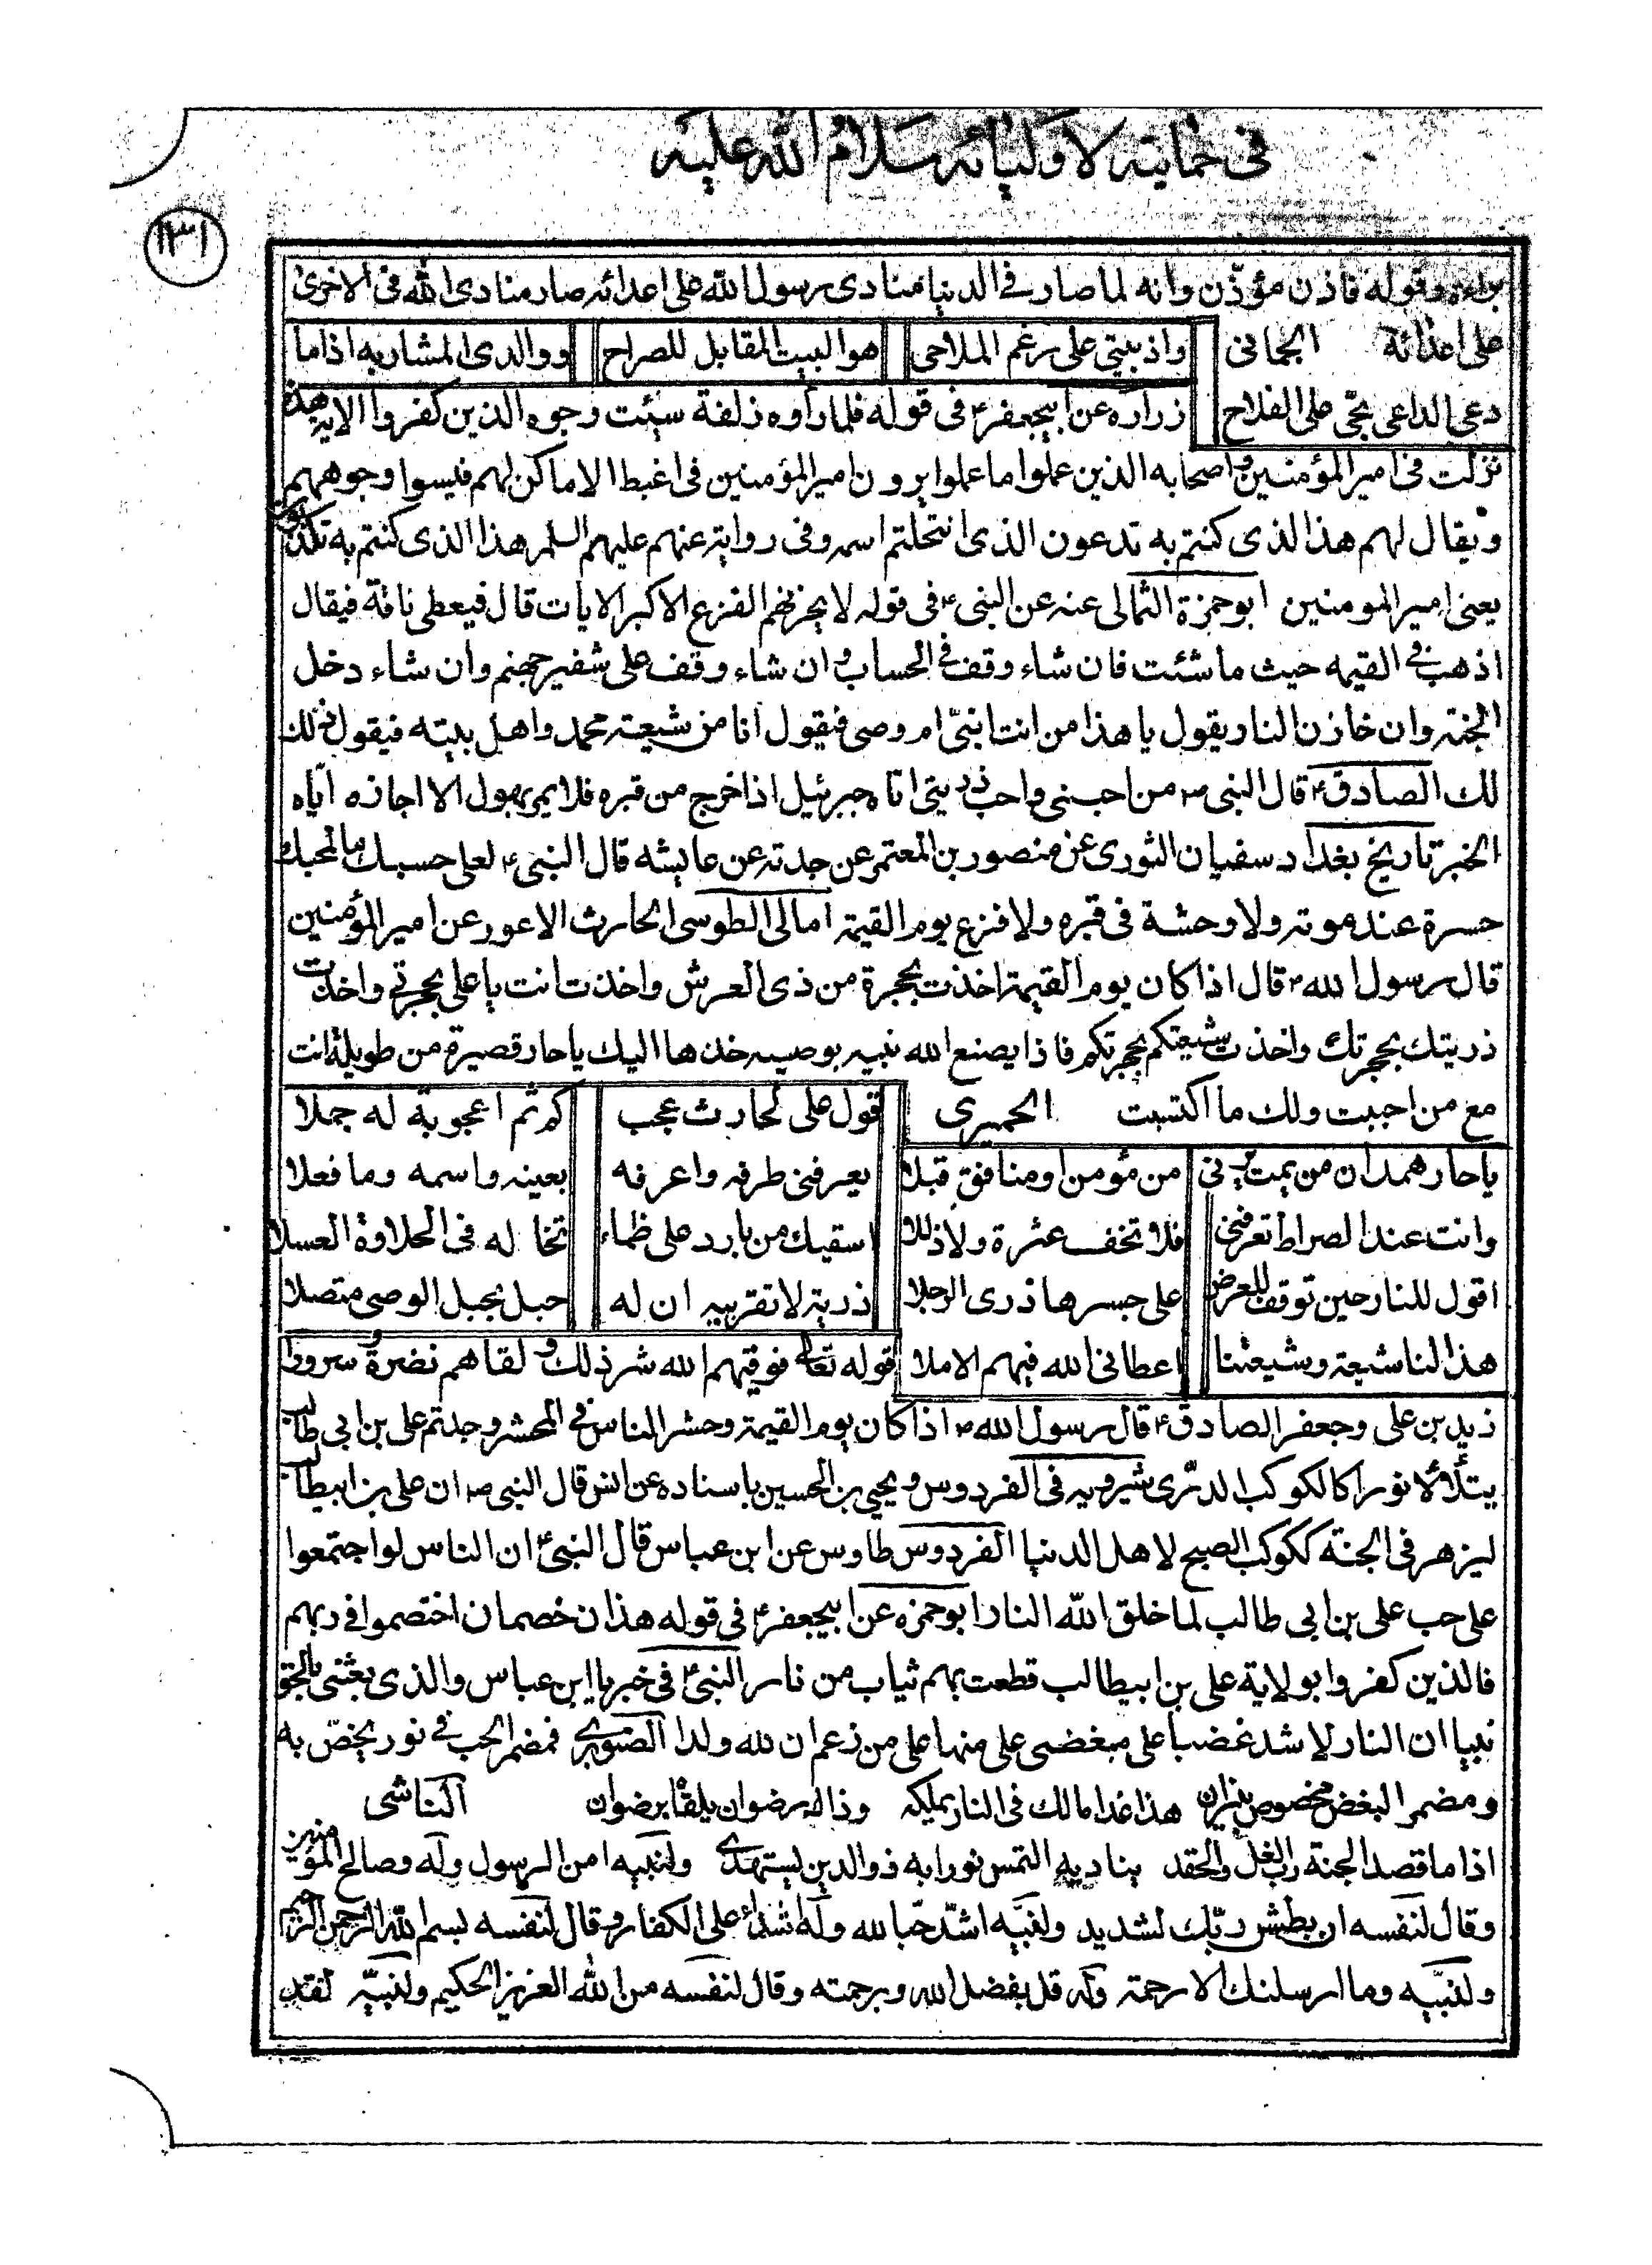 في حمايته لاوليائه سلام الله عليه
١٣١
براءة وقوله فاذن مؤذّن وانه لما صار في الدنيا منادى رسول الله على اعدائه صار منادى الله في الاخرى
على اعدائه الحماني واذ بيتي على رغم الملاحى هو البيت المقابل للصراح ووالدى المشار به اذا ما
دعى الداعى بحّى على الفلاح زراره عن ابيجعفر ع في قوله فلما رأوه زلفة سيئت وجوه الذين كفروا الايه هذه
نزلت في امير المؤمنين واصحابه الذين عملوا ما عملوا يرون امير المؤمنين في اغبط الاماكن لهم فيسوا وجوههم
ويقال لهم هذا الذى كنتم به تدعون الذى انتحلتم اسمه وفي رواية عنهم عليهم السلم هذا الذى كنتم به تكذبون
يعنى امير المومنين ابو حمزة الثمالى عنه عن النبى ع في قوله لا يحزنهم الفزع الاكبر الايات قال فيعطى ناقة فيقال
اذهب في القيمه حيث ما شئت فان شاء وقف في الحساب و ان شاء وقف على شفير جهنم وان شاء دخل
الجنة وان خازن النار يقول يا هذا من انت انبىّ ام وصى فيقول انا من شيعة محمد واهل بيته فيقول ذلك
لك الصادق ع قال النبى ص من احبنى واحب ذريتى اتاه جبرئيل اذا خرج من قبره فلا يمر بهول الا اجازه اياه
الخبر تاريخ بغداد سفيان الثورى عن منصور بن المعتمر عن جدته عن عايشه قال النبى ع لعلى حسبك ما لمحبك
حسرة عند موته ولا وحشة في قبره ولا فزع يوم القيمة امالى الطوسى الحارث الاعور عن امير المؤمنين
قال رسول الله ص قال اذا كان يوم القيمة اخذت بحجزة من ذى العرش واخذت انت يا على بحجزتي واخذت
ذريتك بحجزتك واخذت شيعتكم بحجزتكم فاذا يصنع الله بنبيه بوصيه خذها اليك يا حار قصيرة من طويلة انت
مع من احببت ولك ما اكتسبت الحميرى قول على لحارث عجب كم ثم اعجوبة له جملا
يا حار همدان من يمت يرنى من مؤمن او منافق قبلا يعرفنى طرفه واعرفه بعينه واسمه وما فعلا
وانت عند الصراط تعرفنى فلا تخف عثرة ولا زللا اسقيك من بارد على ظماء تخاله في الحلاوة العسلا
اقول للنار حين توقف للعرض على جسرها ذرى الرجلا ذريه لا تقربيه ان له حبل بحبل الوصى متصلا
هذا لنا شيعة وشيعتنا اعطانى الله فيهم الاملا قوله تعالى فوقيهم الله شر ذلك و لقاهم نضرة وسرورا
زيد بن على وجعفر الصادق ع قال رسول الله ص اذا كان يوم القيمة وحشر الناس في المحشر وجدتم على بن ابى طالب
يتلألأ نورا كالكوكب الدرّى شيرويه في الفردوس و يحيى بن الحسين باسناده عن انس قال النبى ص ان على بن ابيطالب
ليزهر في الجنة ككوكب الصبح لاهل الدنيا الفردوس طاوس عن ابن عباس قال النبى ع ان الناس لو اجتمعوا
على حب على بن ابى طالب لما خلق الله النار ابو حمزه عن ابيجعفر ع في قوله هذان خصمان اختصموا في ربهم
فالذين كفروا بولاية على بن ابيطالب قطعت بهم ثياب من نار النبى ع في خبر يا ابن عباس والذى بعثنى بالحق
نبيا ان النار لاشد غضبا على مبغضى على منها على من زعم ان لله ولدا الصنوبرى فمضمر الحب في نور يخصّ به
ومضمر البغض مخصوص بنيران هذا غدا مالك في النار يملكه وذاك رضوان يلقاه برضوان الناشى
اذا ما قصد الجنة رب الغل والحقد يناديه التمس نورا به ذوالدين يستهدى ولنبيه امن الرسول وله وصالح المؤمنين
وقال لنفسه ان بطش ربّك لشديد ولنبيّه اشدّ حبّا لله وله اشداء على الكفار وقال لنفسه بسم الله الرحمن الرحيم
ولنبيّه وما ارسلنك الا رحمة وله قل بفضل الله وبرحمته وقال لنفسه من الله العزيز الحكيم ولنبيّه لقد